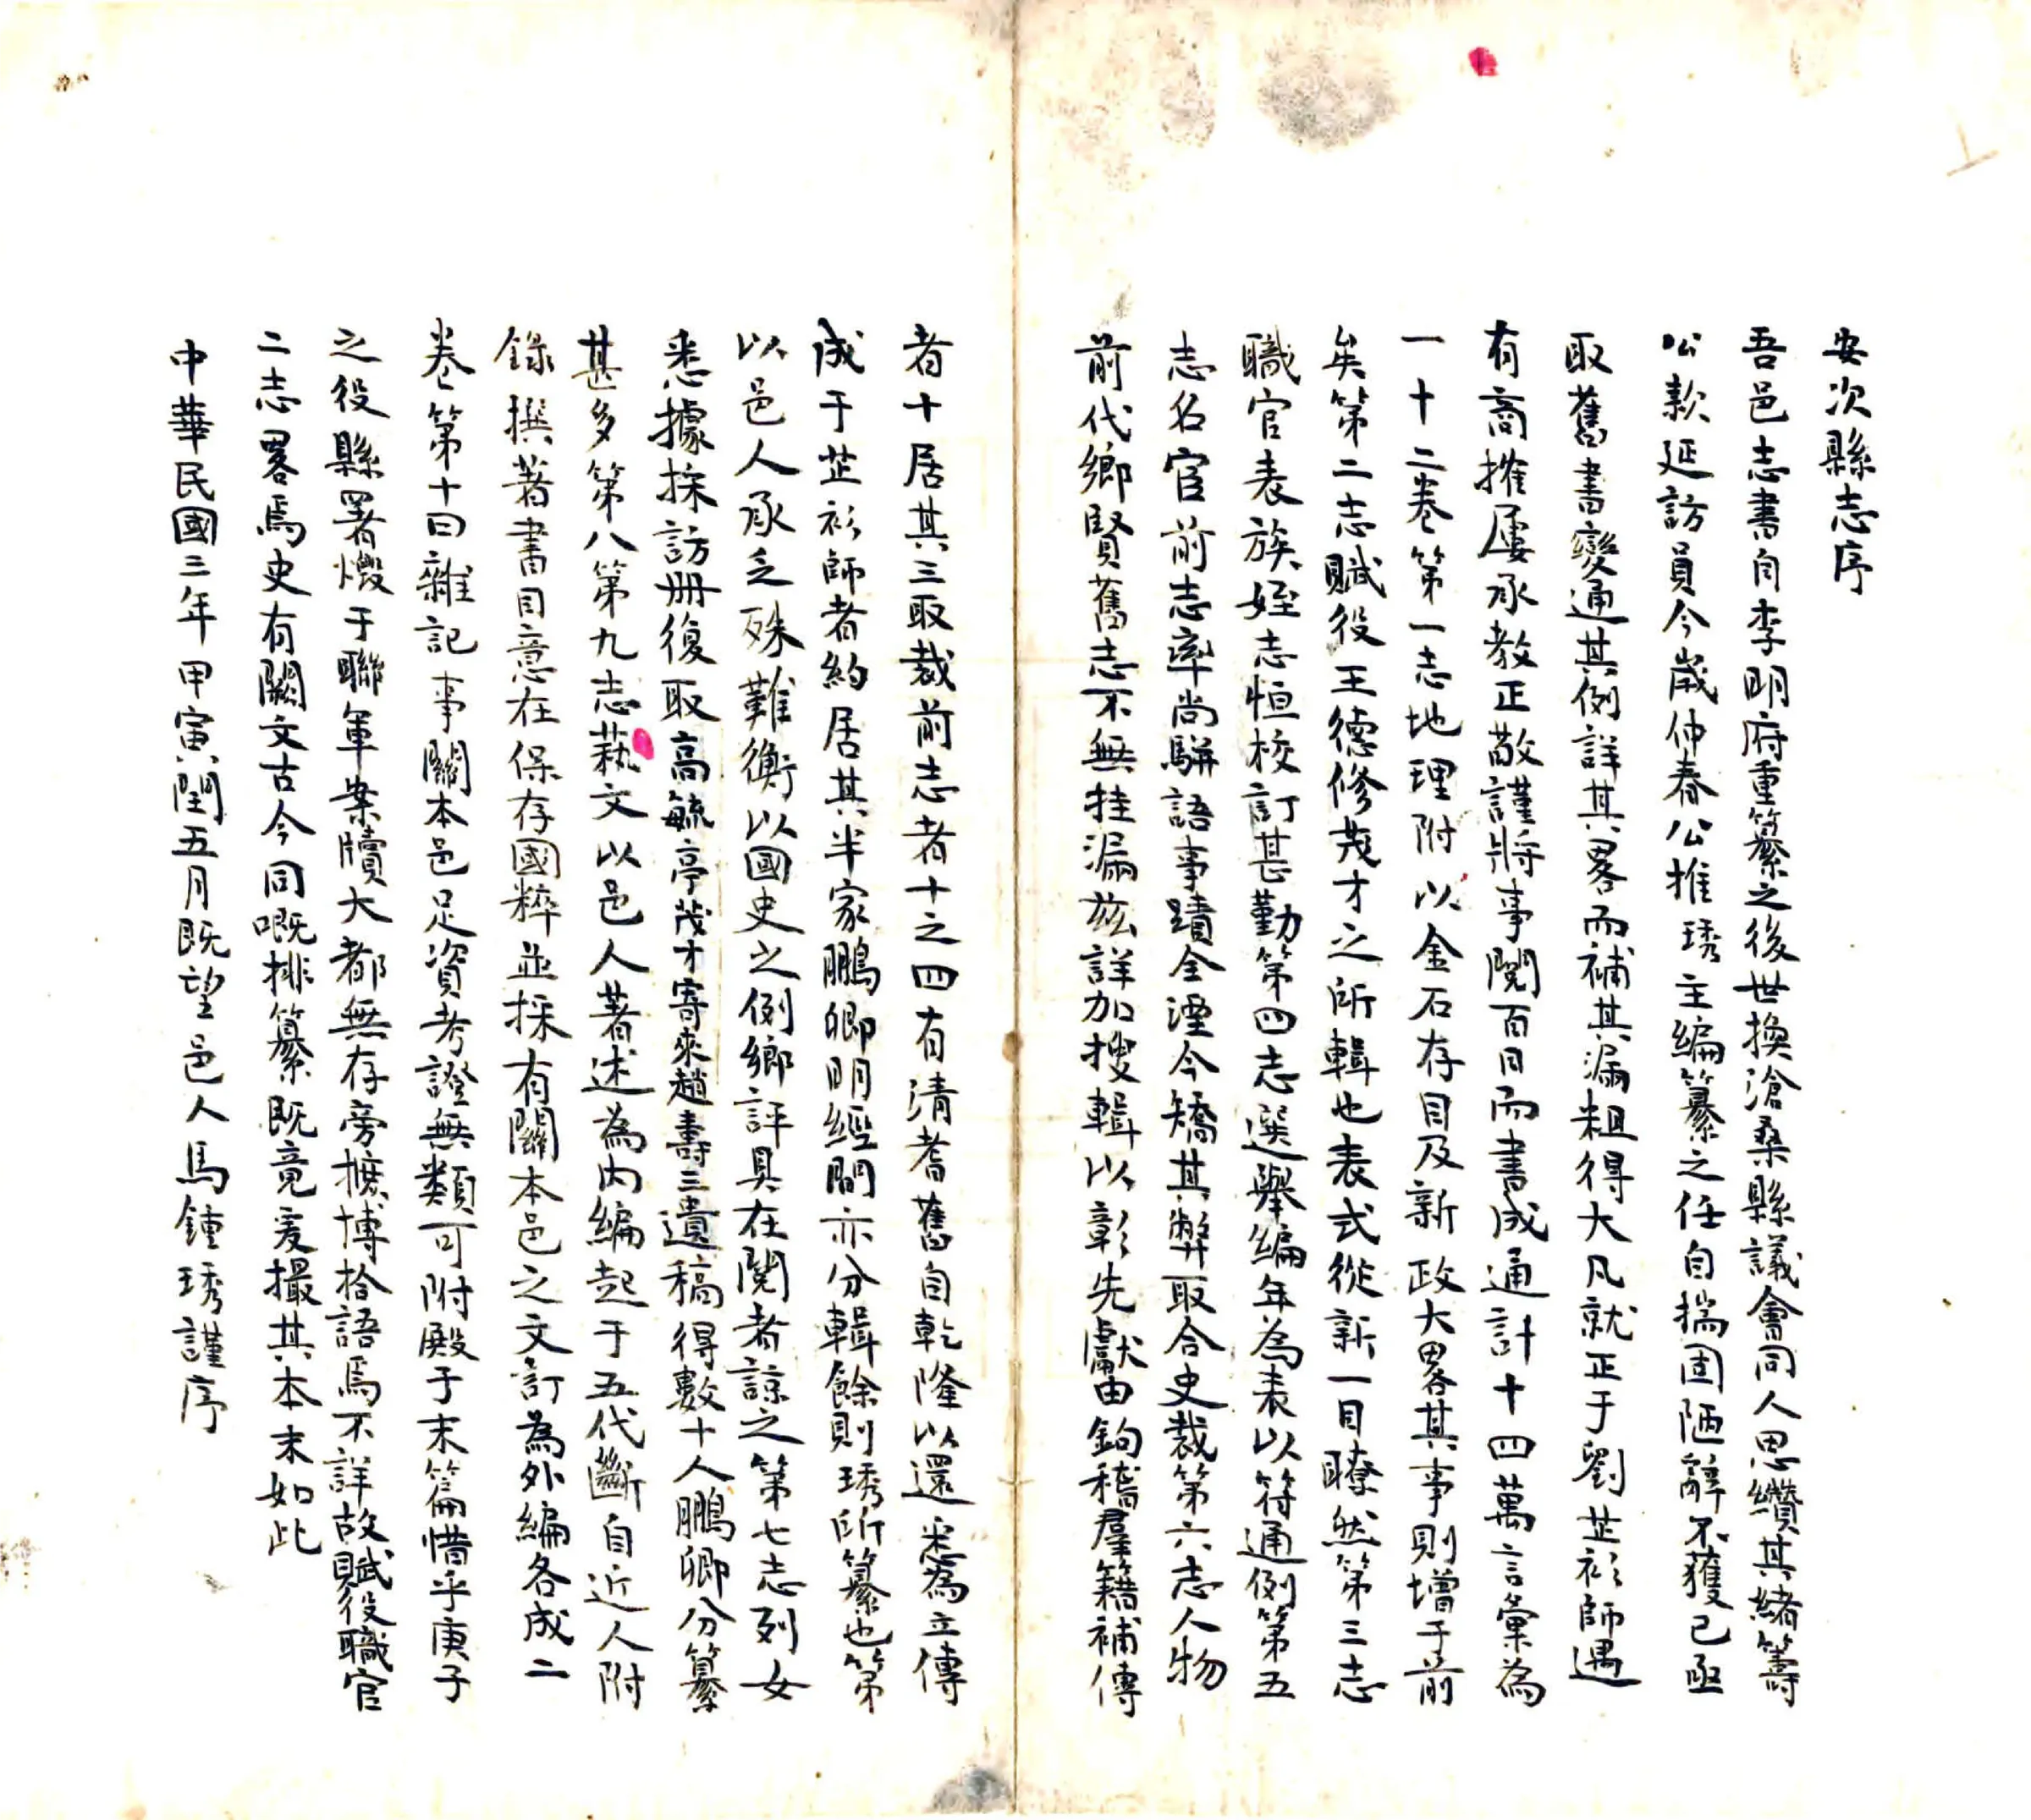 安次縣志序
吾邑志書自李明府重纂之後世換滄桑縣議會同人思纘其緒籌
公款延訪員今歲仲春公推琇主編纂之任自揣固陋辭不獲已亟
取舊書變通其例詳其畧而補其漏粗得大凡就正于劉芷衫師遇
有商搉屢承教正敬謹將事閱百日而書成通計十四萬言彙為
一十二卷第一志地理附以金石存目及新政大畧其事則增于前
矣第二志賦役王德修茂才之所輯也表式從新一目瞭然第三志
職官表族姪志恒校訂甚勤第四志選舉編年為表以符通例第五
志名宦前志率尚駢語事蹟全湮今矯其弊取合史裁第六志人物
前代鄉賢舊志不無挂漏茲詳加搜輯以彰先獻由鉤稽羣籍補傳
者十居其三取裁前志者十之四有清耆舊自乾隆以還悉為立傳
成于芷衫師者約居其半家鵬卿明經間亦分輯餘則琇所纂也第
以邑人承乏殊難衡以國史之例鄉評具在閱者諒之第七志列女
悉據採訪冊復取高毓亭茂才寄來趙壽三遺稿得數十人鵬卿分纂
甚多第八第九志蓺文以邑人著述為內編起于五代斷自近人附
錄撰著書目意在保存國粹並採有關本邑之文訂為外編各成二
卷第十曰雜記事關本邑足資考證無類可附殿于末篇惜乎庚子
之役縣署燬于聯軍案牘大都無存旁摭博拾語焉不詳故賦役職官
二志畧焉史有闕文古今同嘅排纂既竟爰撮其本末如此
中華民國三年甲寅閏五月既望邑人馬鍾琇謹序